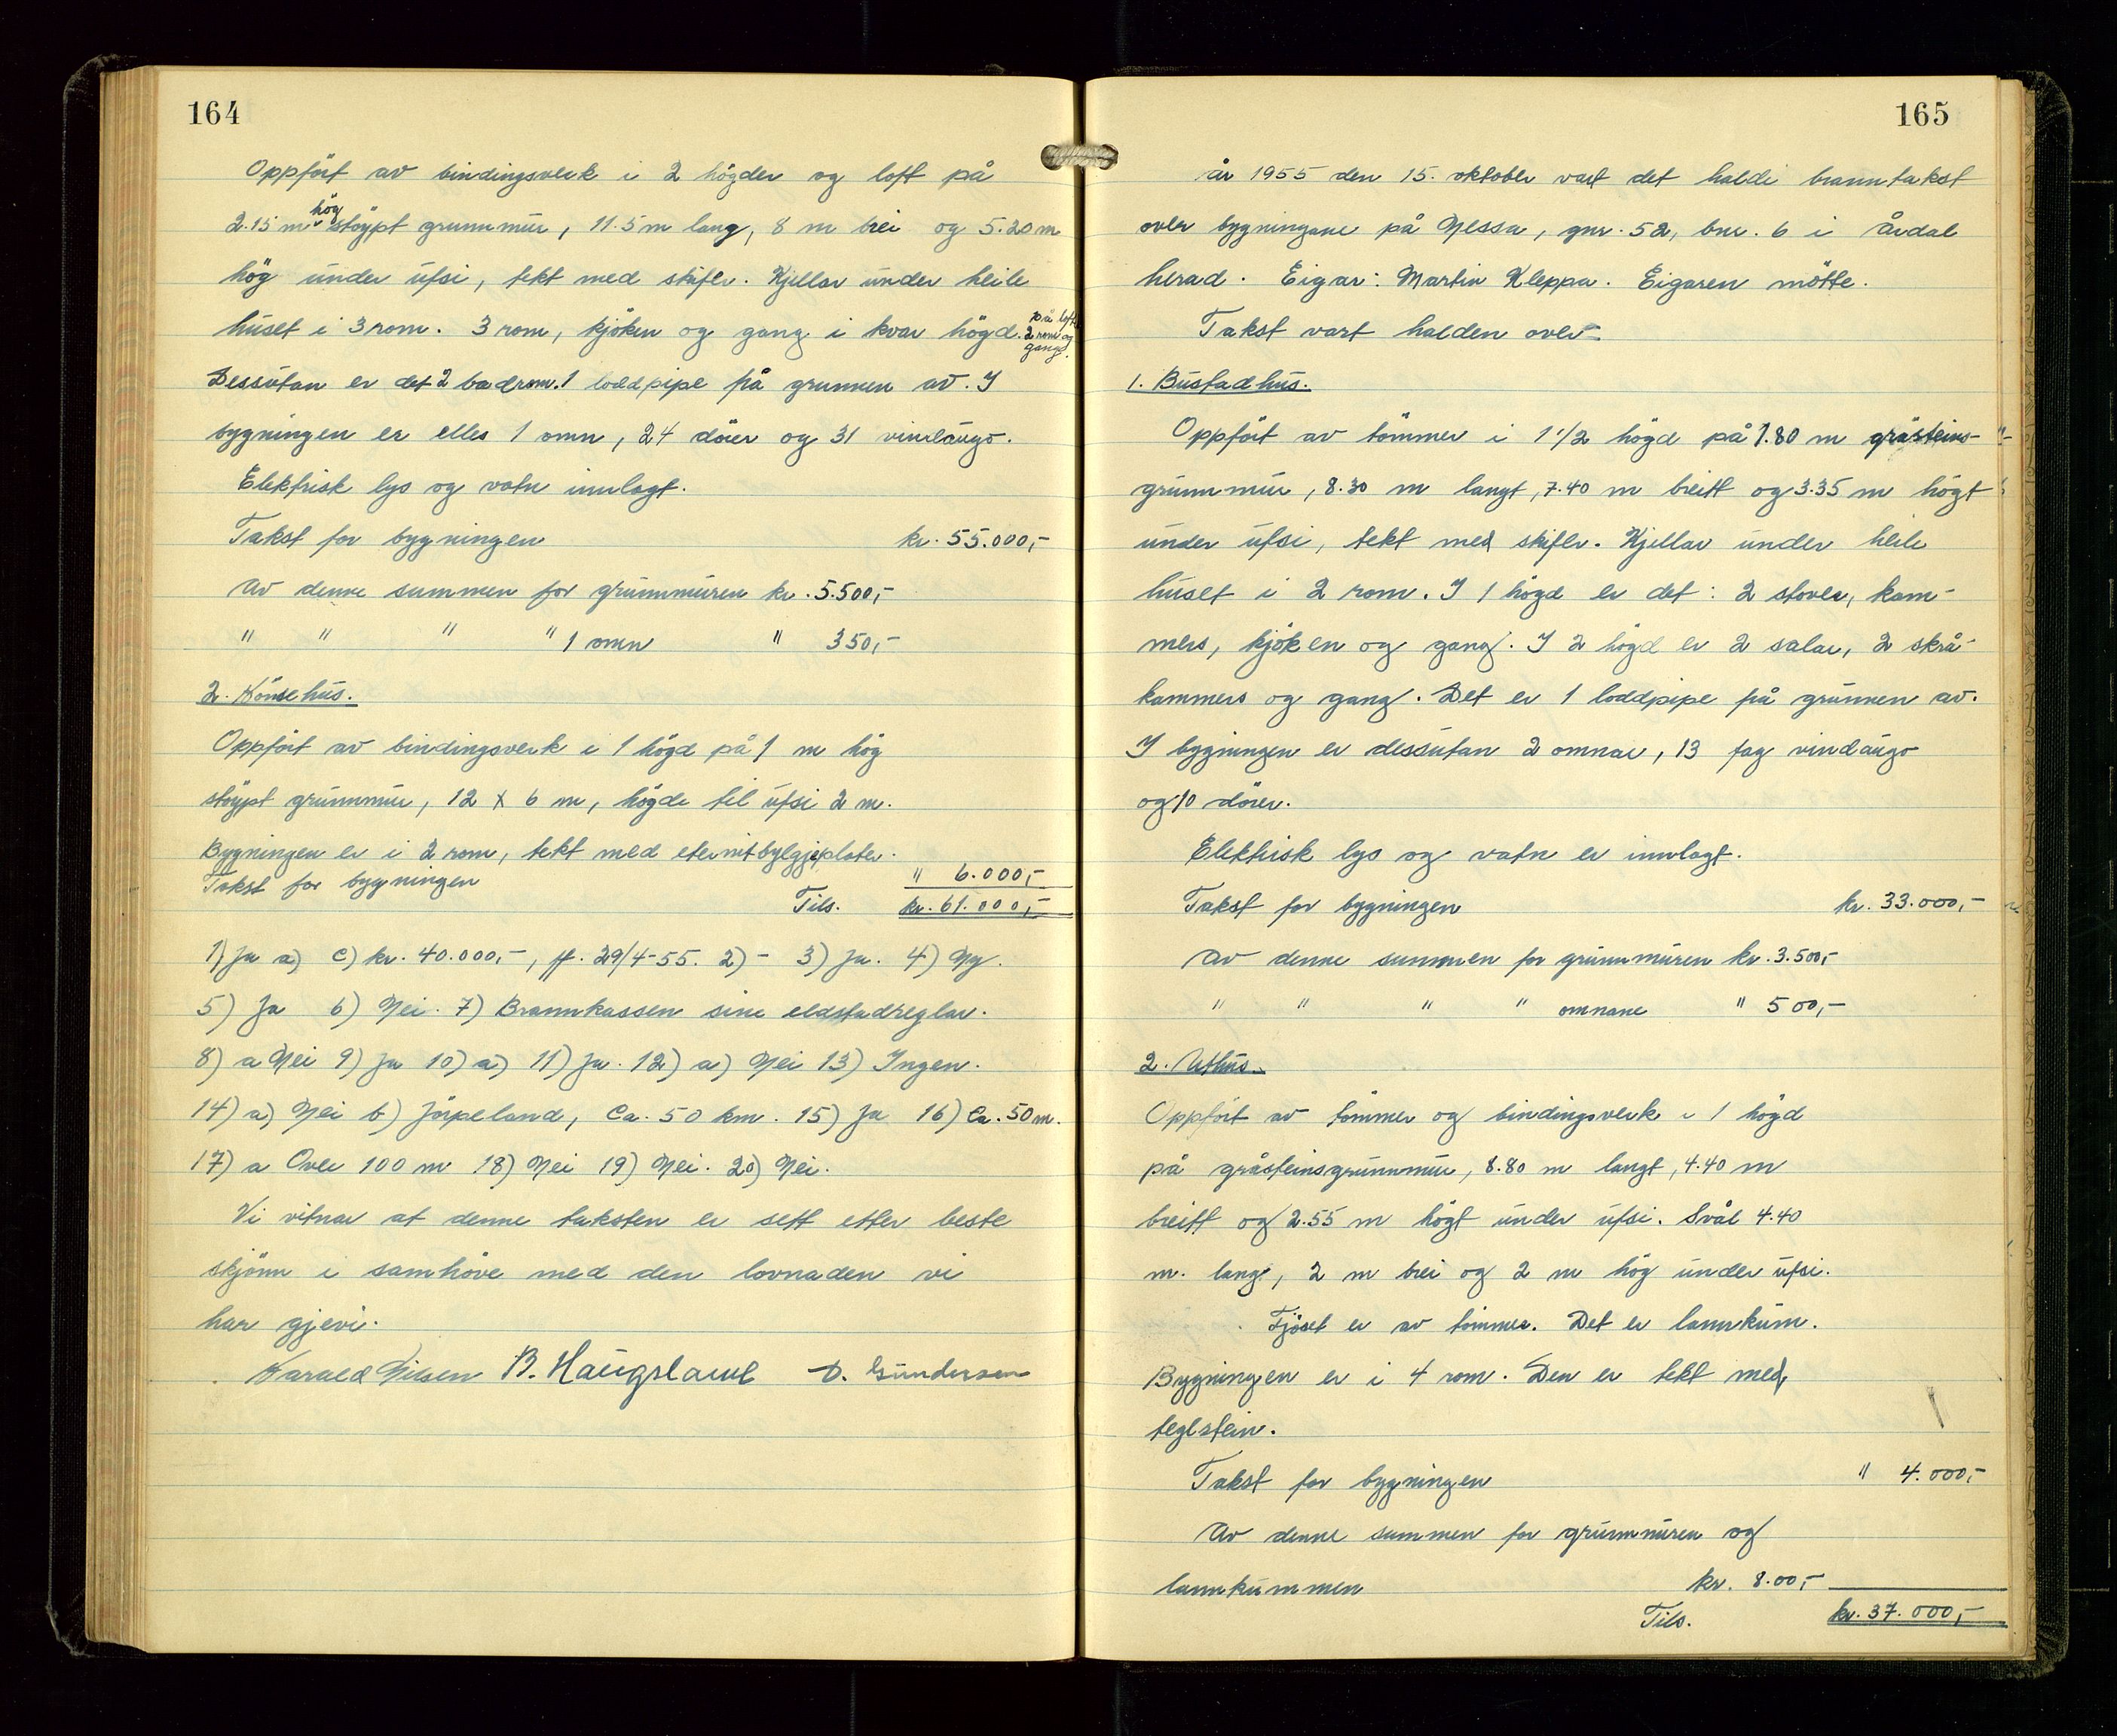 164
Oppfört av bindingsverk i 2 högder og loft på
2.15 m hög stöypt grunnmúr, 11.5 m lang, 8 m brei og 5.20 m
hög únder úfsi, tekt med skifer. Kjellar únder heile
húset i 3 rom. 3 rom, kjöken og gang i kvar högd. på loft 2 rom og gang.
Dessútan er det 2 badrom. 1 loddpipe på grunnen av. I
bygningen er elles 1 omn, 24 dörer og 31 vindaúgo.
Elektrisk lys og vatn innlagt.
Takst for bygningen kr. 55.000,-
Av denne summen for grúnnmúren kr. 5.500,-
" " " " 1 omn " 350,-
2. Hönsehús.
Oppfört av bindingsverk i 1 högd på 1 m hög
stöypt grúnnmúr, 12 x 6 m, högde til úfsi 2 m.
Bygningen er i 2 rom, tekt med eternitbylgjeplater.
Takst for bygningen " 6.000,-
Tils. kr. 61.000,-
1) Ja a) c) kr. 40.000,-, pf. 29/4-55. 2) - 3) Ja. 4) Ny.
5) Ja 6) Nei. 7) Brannkassen sine eldstadreglar.
8) a Nei 9) Ja 10) a) 11) Ja. 12) a) Nei 13) Ingen.
14) a) Nei b) Jörpeland, Ca. 50 km. 15) Ja 16) Ca. 50 m.
17) a Over 100 m 18) Nei 19) Nei. 20) Nei.
Vi vitnar at denne taksten er sett etter beste
skjönn i samhöve med den lovnaden vi
har gjevi.
Harald Nilsen B. Haúgsland D. Gúndersen
165
År 1955 den 15. oktober vart det haldi branntakst
over bygningane på Nessa, gnr. 52, bnr. 6 i Årdal
herad. Eigar: Martin Kleppa. Eigaren mötte.
Takst vart halden over
1. Bústadhús.
Oppfört av tömmer i 1 1/2 högd på 1.80 m gråsteins-
grúnnmúr, 8.30 m langt, 7.40 m breitt og 3.35 m högt
únder úfsi, tekt med skifer. Kjellar únder heile
húset i 2 rom. I 1 högd er det: 2 stover, kam-
mers, kjöken og gang. I 2 högd er 2 salar, 2 skrå-
kammers og gang. Det er 1 loddpipe på grúnnen av.
I bygningen er dessútan 2 omnar, 13 fag vindaúgo
og 10 dörer.
Elektrisk lys og vatn er innlagt.
Takst for bygningen kr. 33.000,-
Av denne summen for grúnnmúren kr. 3.500,-
" " " " omnane " 500,-
2. Uthús.
Oppfört av tömmer og bindingsverk i 1 högd
på gråsteinsgrúnnmúr, 8.80 m langt, 4.40 m
breitt og 2.55 m högt únder úfsi. Svål 4.40
m. lang, 2 m brei og 2 m hög únder úfsi.
Fjöset er av tömmer. Det er lannkúm.
Bygningen er i 4 rom. Den er tekt med
teglstein.
Takst for bygningen " 4.000,-
Av denne summen for grúnnmúren og
lannkúmmen kr. 8.00,-
Tils. kr. 37.000,-